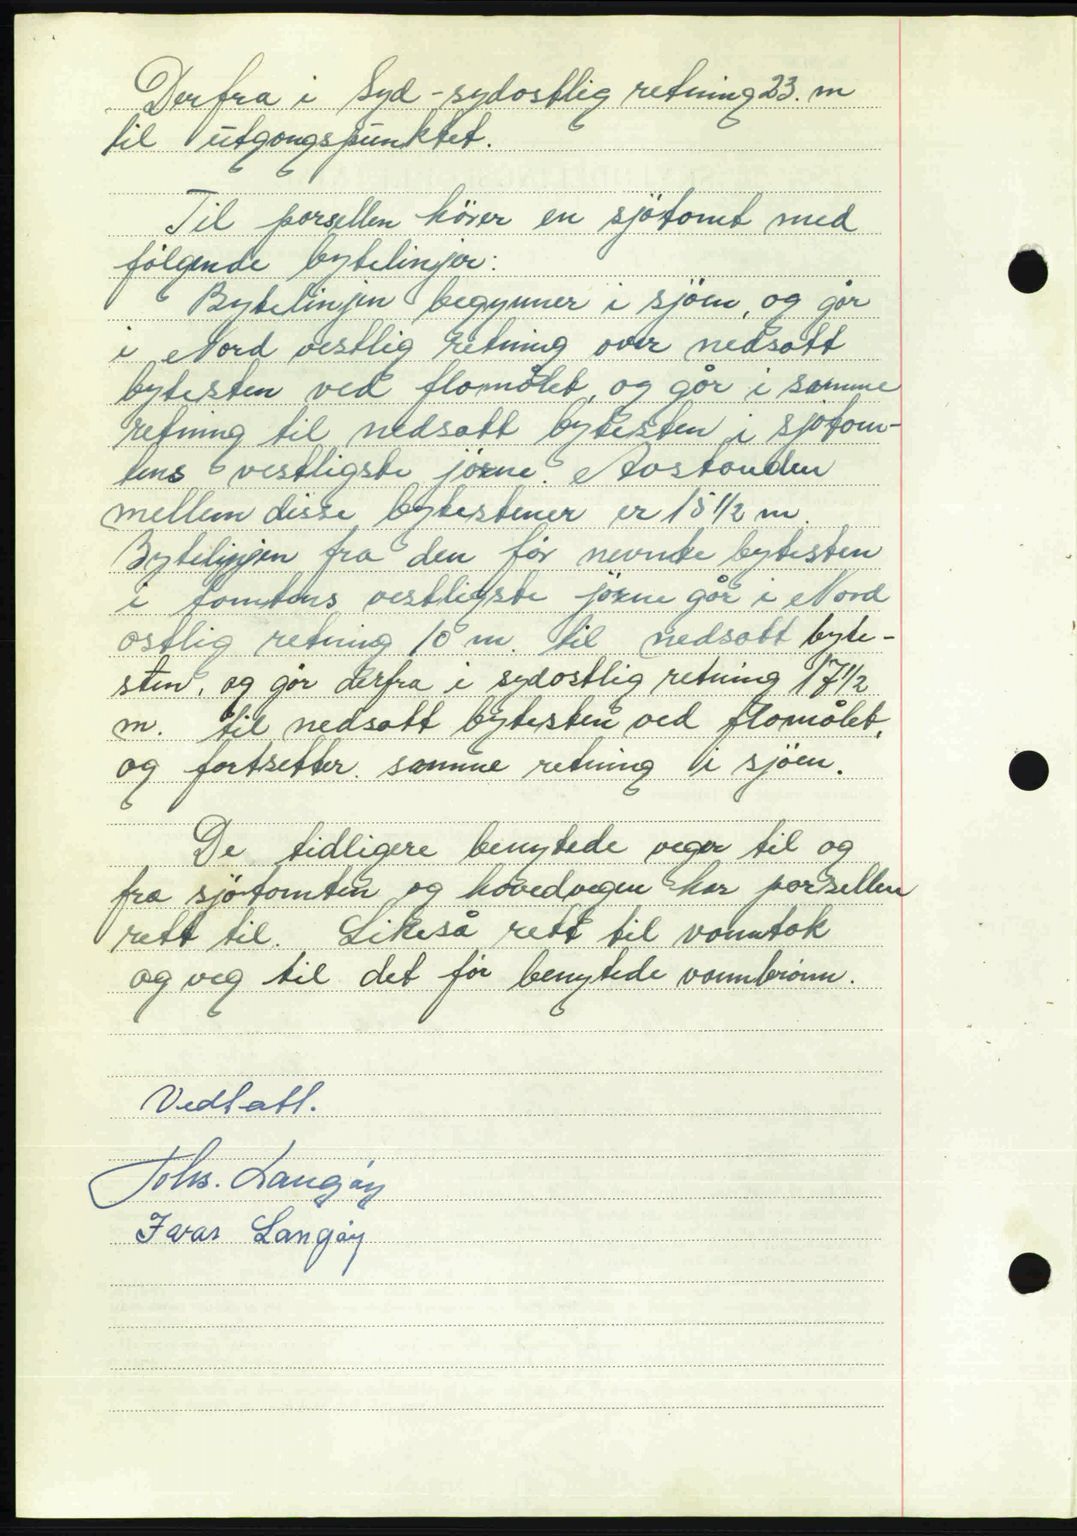 Derfra i Syd-sydostlig retning 23. m
til utgangspunktet.
Til parsellen hører en sjötomt med
følgende bytelinjer:
Bytelinjen begynner i sjöen, og går
i Nord vestlig retning over nedsatt
bytesten ved flomålet, og går i samme
retning til nedsatt bytesten i sjötom-
tens vestligste jörne. Avstanden
mellem disse bytestener er 15 1/2 m.
Bytelinjen fra den før nevnte bytesten
i tomtens vestligste jörne går i Nord
ostlig retning 10 m. til nedsatt byte-
sten, og går derfra i sydostlig retning 17 1/2
m. til nedsatt bytesten ved flomålet,
og fortsetter samme retning i sjöen.
De tidligere benytede veger til og
fra sjötomten og hovedvegen har parsellen
rett til. Likeså rett til vanntak
og veg til det før benytede vannbrönn.
Vedtatt.
Johs. Langøy
Ivar Langøy